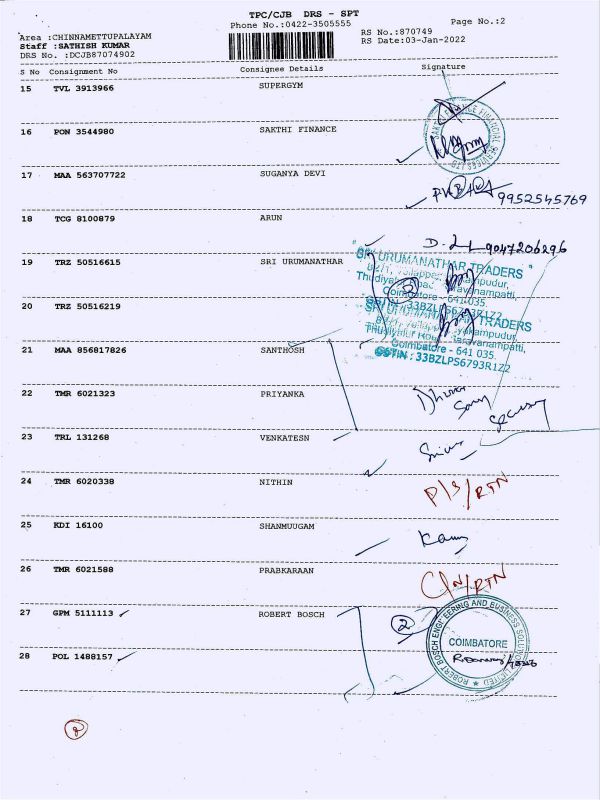 TPC/CJB DRS - SPT
Phone No.:0422-3505555
Page No.:2
Area :CHINNAMETTUPALAYAM
RS No.:870749
Staff :SATHISH KUMAR
RS Date:03-Jan-2022
DRS No. :DCJB87074902
S No Consignment No Consignee Details Signature
15 TVL 3913966 SUPERGYM
16 PON 3544980 SAKTHI FINANCE
17 MAA 563707722 SUGANYA DEVI
9952545769
18 TCG 8100879 ARUN
9047206296
19 TRZ 50516615 SRI URUMANATHAR
SRI URUMANATHAR TRADERS
Coimbatore - 641 035.
GSTIN : 33BZLPS6793R1Z2
20 TRZ 50516219
SRI URUMANATHAR TRADERS
Coimbatore - 641 035.
GSTIN : 33BZLPS6793R1Z2
3
21 MAA 856817826 SANTHOSH
22 TMR 6021323 PRIYANKA
23 TRL 131268 VENKATESN
24 TMR 6020338 NITHIN
P/S/RTN
25 KDI 16100 SHANMUUGAM
26 TMR 6021588 PRABKARAAN
C/N/RTN
27 GPM 5111113 ROBERT BOSCH
2
ROBERT BOSCH ENGINEERING AND BUSINESS SOLUTIONS LIMITED
COIMBATORE
28 POL 1488157